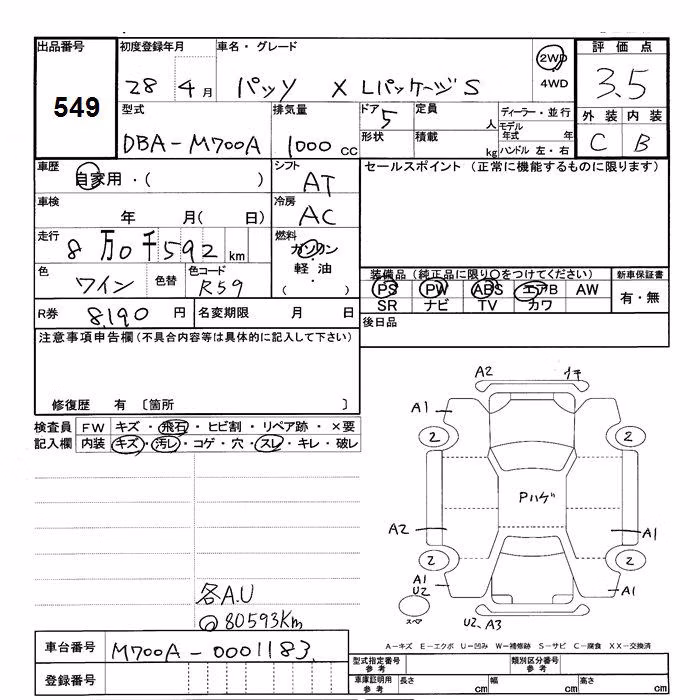 出品番号
549
初度登録年月
28 4月
車名・グレード
パッソ X LパッケージS
2WD
4WD
評価点
3.5
型式
DBA-M700A
排気量
1000cc
ドア
5
定員
人
形状
積載
kg
ディーラー・並行
モデル年式 年
ハンドル 左・右
外装 内装
C B
車歴
自家用・( )
シフト
AT
セールスポイント(正常に機能するものに限ります)
車検
年 月( 日)
冷房
AC
走行
8万0千592km
燃料
ガソリン
・
軽油
( )
色
ワイン
色替
色コード
R59
装備品(純正品に限り○をつけてください)
PS PW ABS エアB AW
SR ナビ TV カワ
新車保証書
有・無
R券 8,190円
名変期限 月 日
後日品
注意事項申告欄(不具合内容等は具体的に記入して下さい)
修復歴 有 〔箇所 〕
検査員記入欄
FW キズ・飛石・ヒビ割・リペア跡・×要
内装 キズ・汚レ・コゲ・穴・スレ・キレ・破レ
A2
A1
2
2
Pハゲ
A2
A1
2
2
A1
U2
A1
スペア
U2、A3
各A.U
@80593Km
A-キズ E-エクボ U-凹み W-補修跡 S-サビ C-腐食 XX-交換済
車台番号 M700A-0001183
登録番号
型式指定番号
参考
類別区分番号
参考
車庫証明用
参考
長さ cm
幅 cm
高さ cm